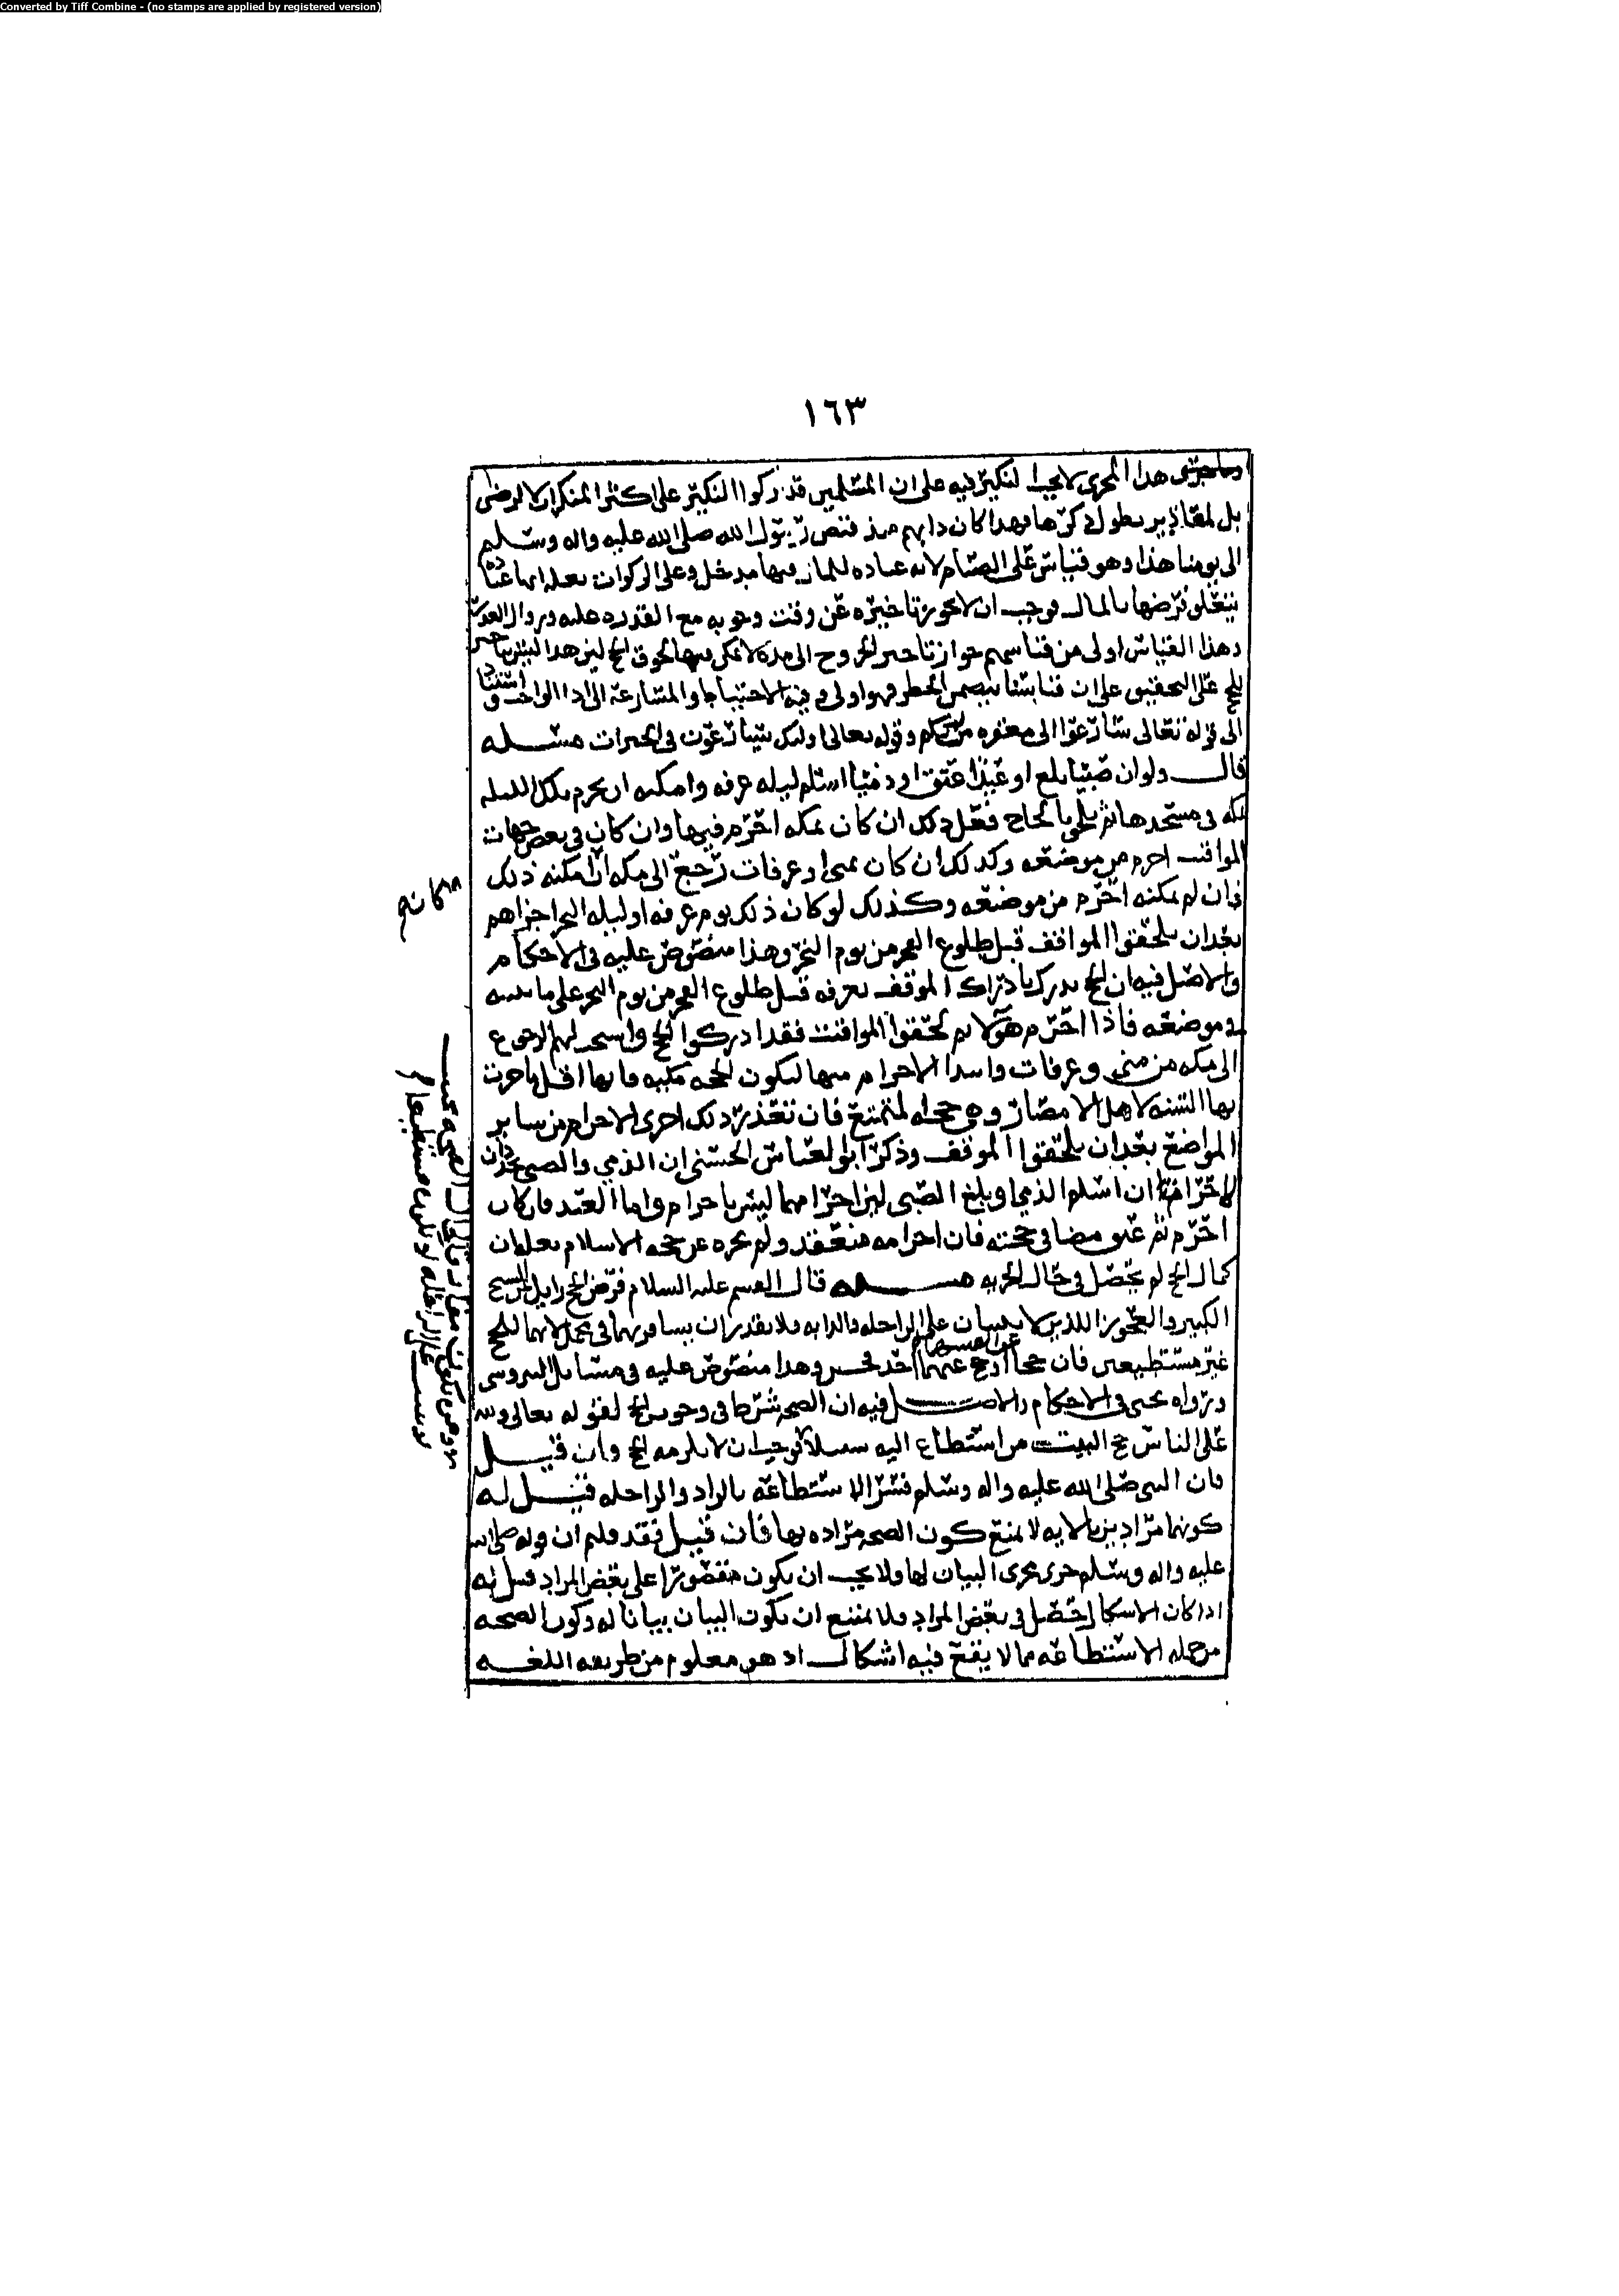 Converted by Tiff Combine - (no stamps are applied by registered version)
١٦٣
هذا المجرى لا يجب النكير فيه على ان المسلمين قد تركوا النكير على اكثر المنكرات لا لرضى
بل لمعاذير يطول ذكرها فهذا كان دابهم منذ قبض رسول الله صلى الله عليه واله وسلم
الى يومنا هذا وهو قياس على الصيام لانه عباده للمال فيها مدخل وعلى الزكوات بعله انها عباده
يتعلق فرضها بالمال فوجب ان لا يجوز تاخيره عن وقت وجوبه مع القدره عليه وزوال العذر
وهذا القياس اولى من قياسهم جواز تاخير الخروج الى مده لا يمكن فيها لحوق الحج لان هذا ليس بتاخير
للحج على التحقيق على ان قياسنا يتضمن الحظر فهو اولى وفيه الاحتياط والمسارعه الى اداء الواجب واستنادا
الى قوله تعالى سارعوا الى مغفره من ربكم وقوله تعالى اولئك يسارعون في الخيرات مسله
قال ولو ان صبيا بلغ او عبدا عتق او ذميا اسلم ليله عرفه وامكنه ان يحرم تلك الليله
بمكه في مسجدها ثم يلحق بالحاج فعل ذلك ان كان بمكه احرم فيها وان كان في بعض جهات
المواقيت احرم من موضعه وكذلك ان كان بمنى او عرفات رجع الى مكه ان امكنه ذلك
فان لم يمكنه احرم من موضعه وكذلك لو كان ذلك يوم عرفه او ليله النحر اجزاهم
بعد ان يلحقوا المواقف قبل طلوع الفجر من يوم النحر وهذا منصوص عليه في الاحكام
والاصل فيه ان الحج يدرك بادراك الموقف بعرفه قبل طلوع الفجر من يوم النحر على ما نبينه
في موضعه فاذا احرم هولا ثم لحقوا المواقف فقد ادركوا الحج واستحب لهم الرجوع
الى مكه من منى وعرفات وابتدا الاحرام منها لتكون الحجه مكيه فانها اقل ما جرت
بها السنه لاهل الامصار وهي حجه المتمتع فان تعذر ذلك اجزى الاحرام من ساير
المواضع بعد ان يلحقوا الموقف وذكر ابو العباس الحسني ان الذمي والصبي يجددان
الاحرام ان اسلم الذمي وبلغ الصبي لان احرامهما ليس باحرام واما العبد فان كان
احرم ثم عتق مضا في حجته فان احرامه منعقد ولم يجزه عن حجه الاسلام بعله ان
كمال الحج لم يحصل في حال الحريه مسله قال القسم عليه السلام فرض الحج زايل عن الشيخ
الكبير والعجوز اللذين لا يثبتان على الراحله والدابه ولا يقدران يسافر بهما في محمل لانهما للحج
غير مستطيعين فان حجا او حج عنهما احد فحسن وهذا منصوص عليه في مسايل النيروسي
ورواه يحيى في الاحكام والاصل فيه ان الصحه شرط في وجوب الحج لقوله تعالى ولله
على الناس حج البيت من استطاع اليه سبيلا فوجب ان لا يلزمه الحج وان قيل
فان النبي صلى الله عليه واله وسلم فسر الاستطاعه بالزاد والراحله قيل له
كونهما مرادين بالايه لا يمنع كون الصحه مراده بها فان قيل فقد قلتم ان قوله صلى الله
عليه واله وسلم جرى مجرى البيان لها ولا يجب ان يكون مقصورا على بعض المراد قيل له
اذا كان الاشكال حصل في بعض المراد فلا يمتنع ان يكون البيان بيانا له وكون الصحه
من جمله الاستطاعه مما لا يقع فيه اشكال اذ هو معلوم من طريقه اللغه